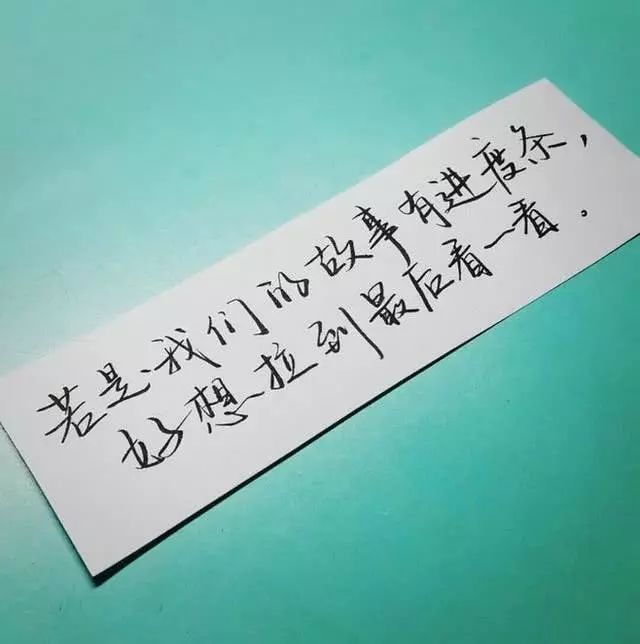 若是我们的故事有进度条，
好想拉到最后看一看．